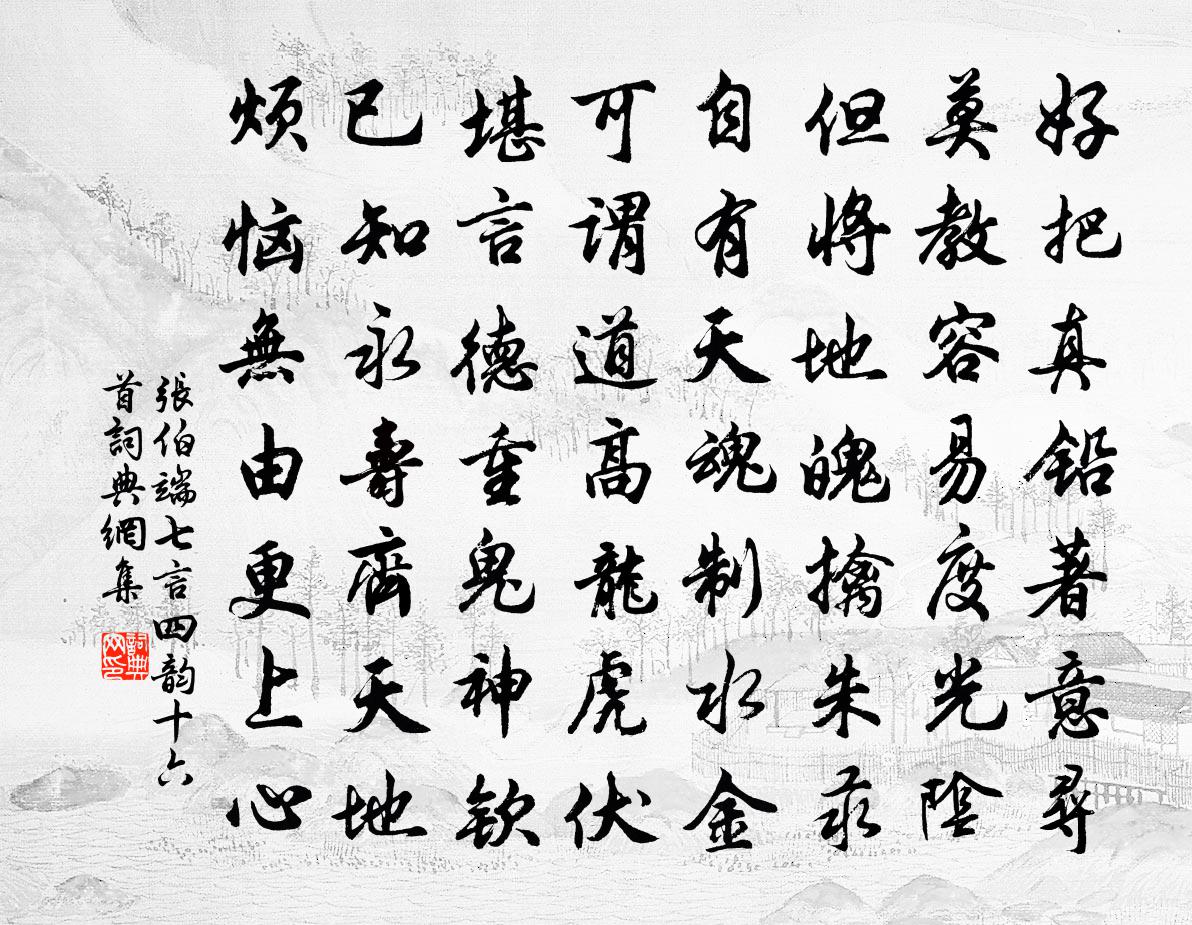 好把真鉛著意尋
莫教容易度光陰
但將地魄擒朱汞
自有天魂制水金
可謂道高龍虎伏
堪言德重鬼神欽
已知永壽齊天地
煩惱無由更上心
張伯端七言四韵十六
首詞典網集
詞典
网印